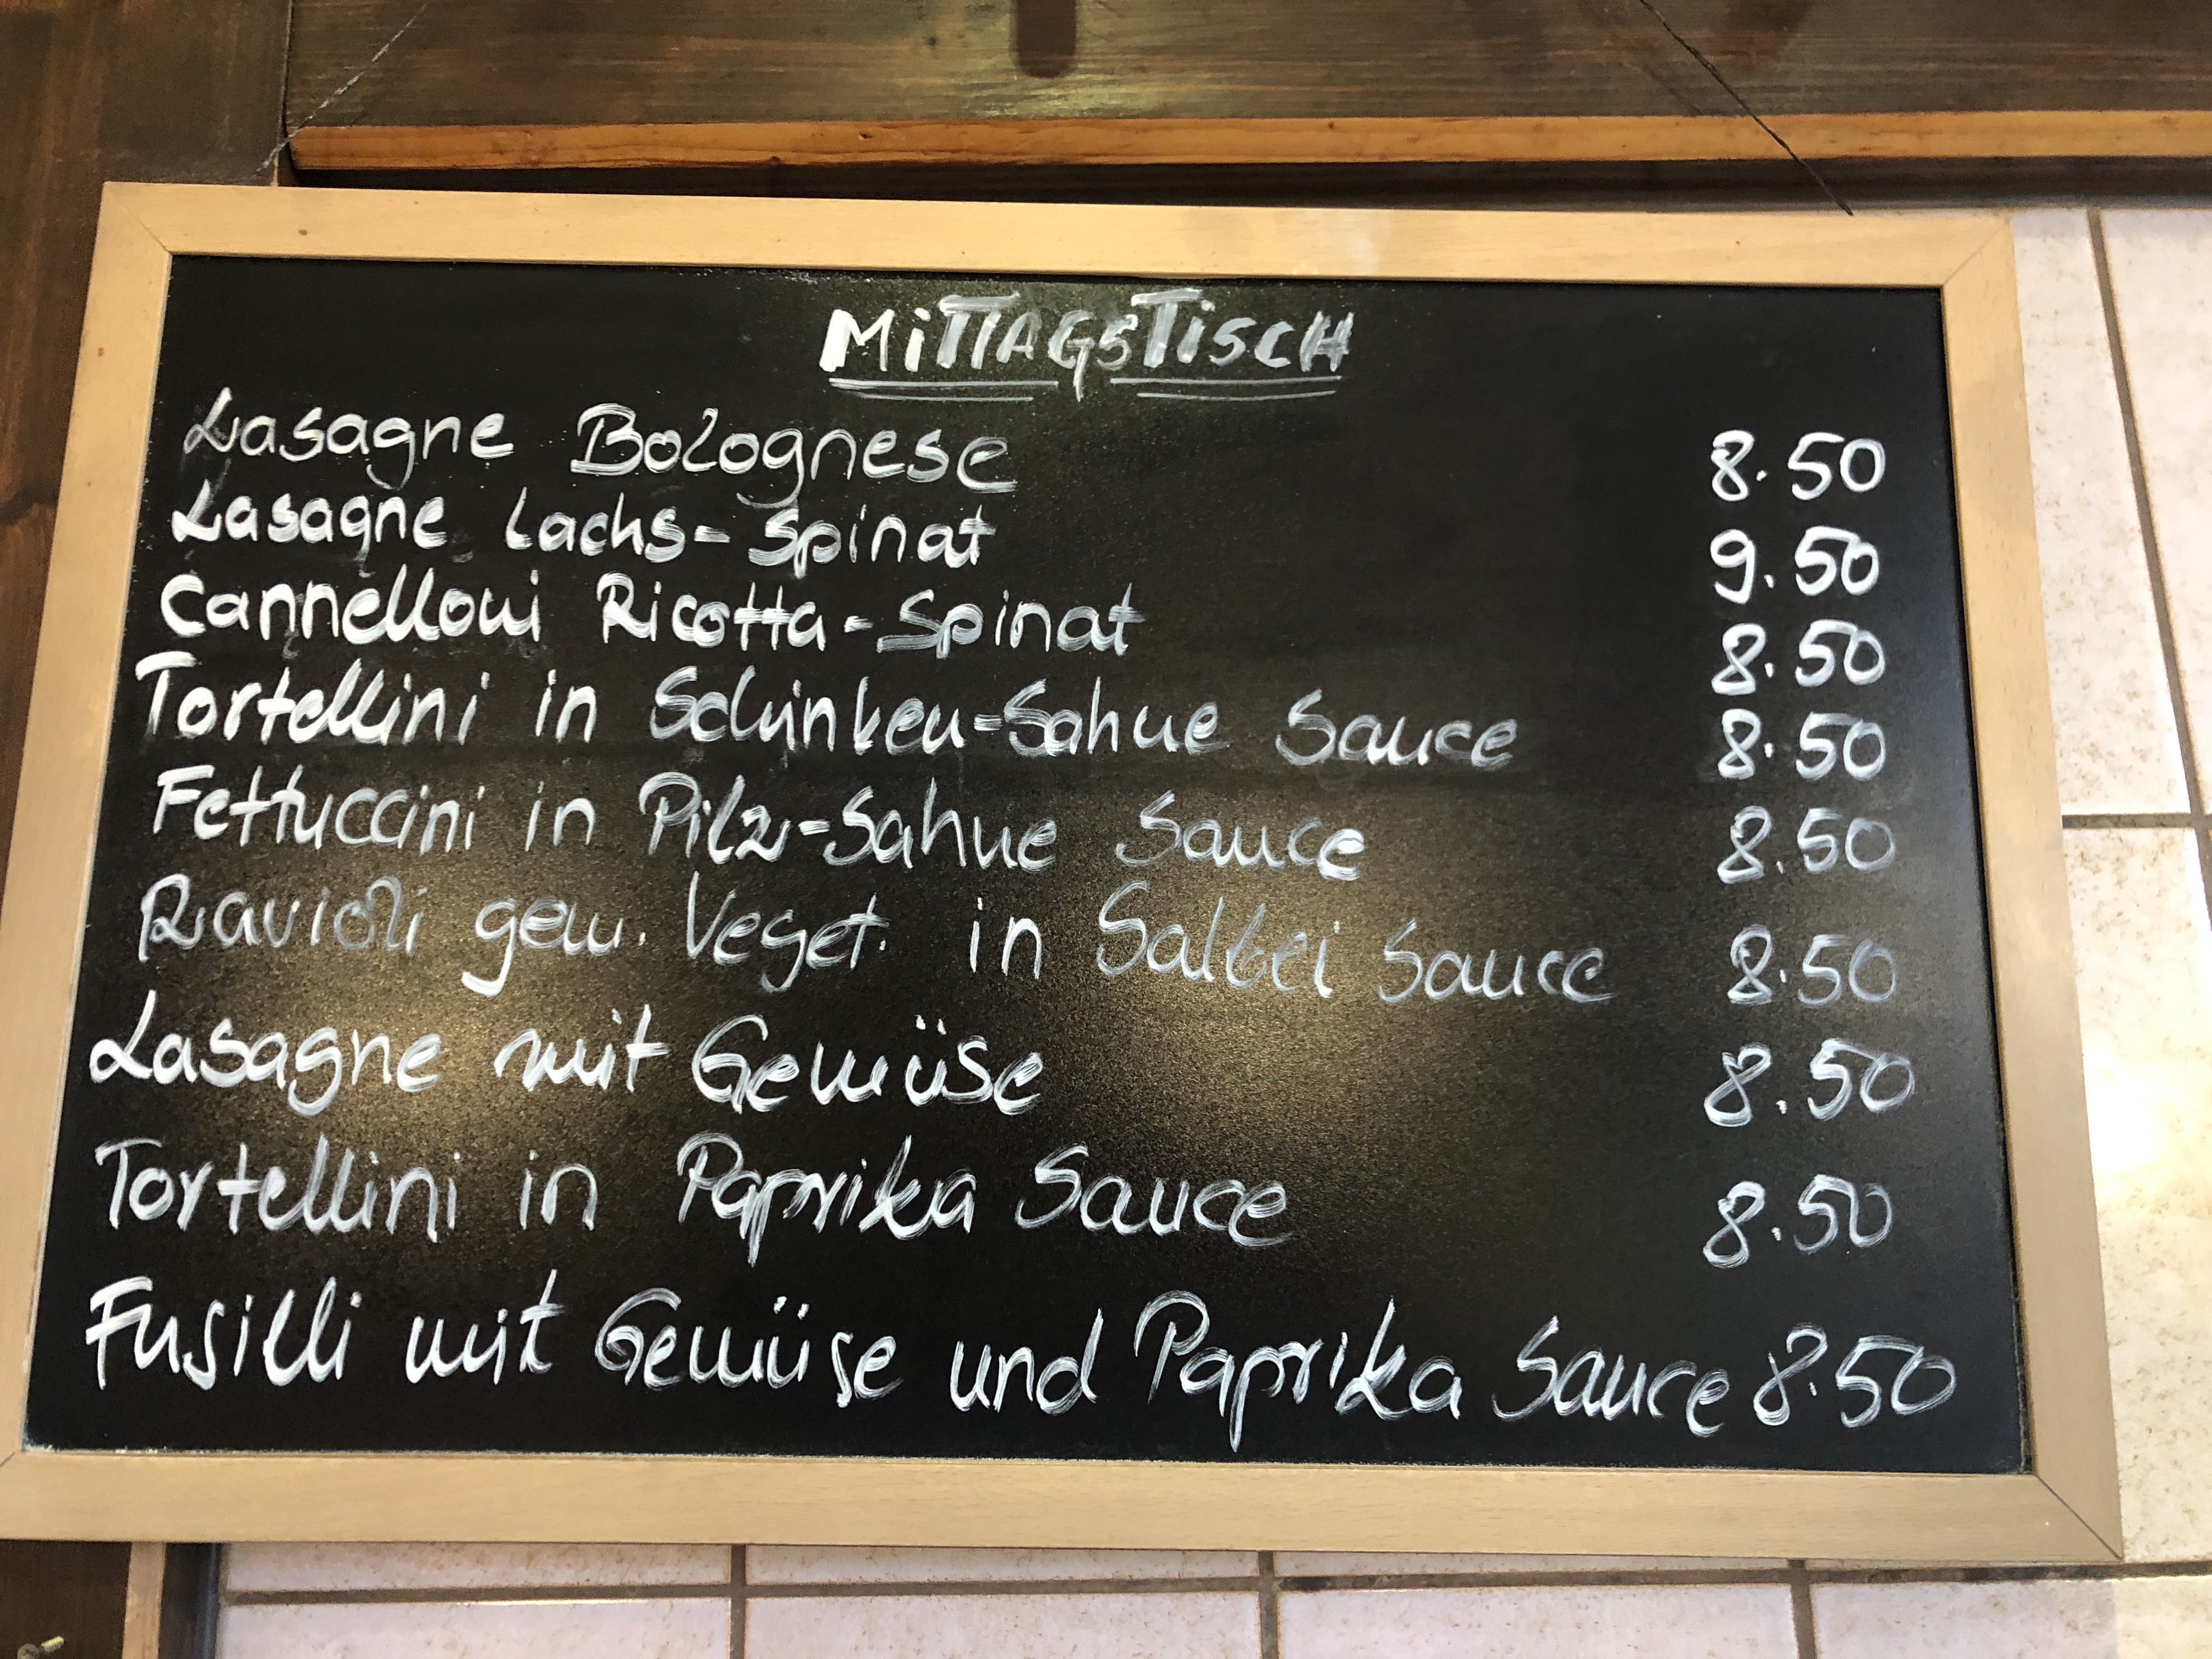 MiTTAGSTiSCH
Lasagne Bolognese 8.50
Lasagne Lachs-Spinat 9.50
Cannelloni Ricotta-Spinat 8.50
Tortellini in Schinken-Sahne Sauce 8.50
Fettuccini in Pilz-Sahne Sauce 8.50
Ravioli gem. Veget. in Salbei Sauce 8.50
Lasagne mit Gemüse 8.50
Tortellini in Paprika Sauce 8.50
Fusilli mit Gemüse und Paprika Sauce 8.50